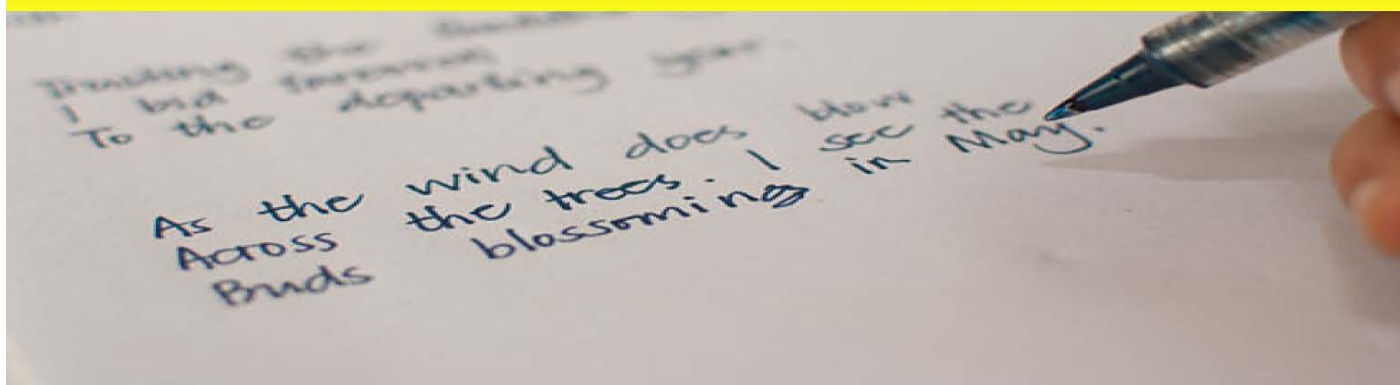 Trusting the
I bid farewell
To the departing year.
As the wind does blow
Across the trees. I see the
Buds blossoming in May.